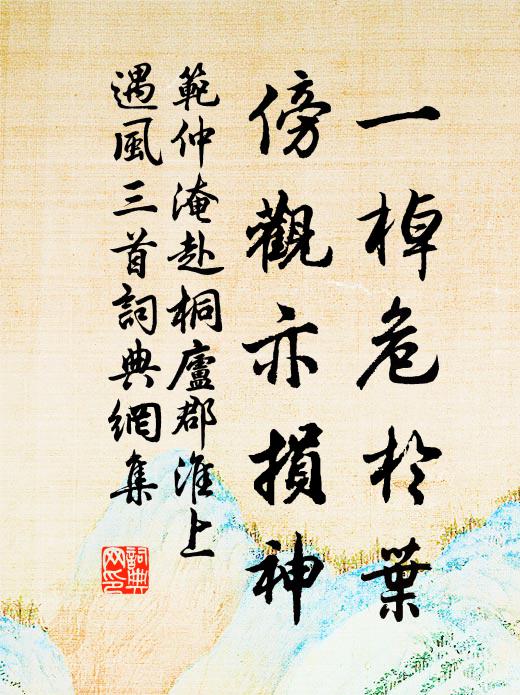 一棹危於葉
傍觀亦損神
範仲淹赴桐廬郡淮上
遇風三首詞典網集
詞典
网印